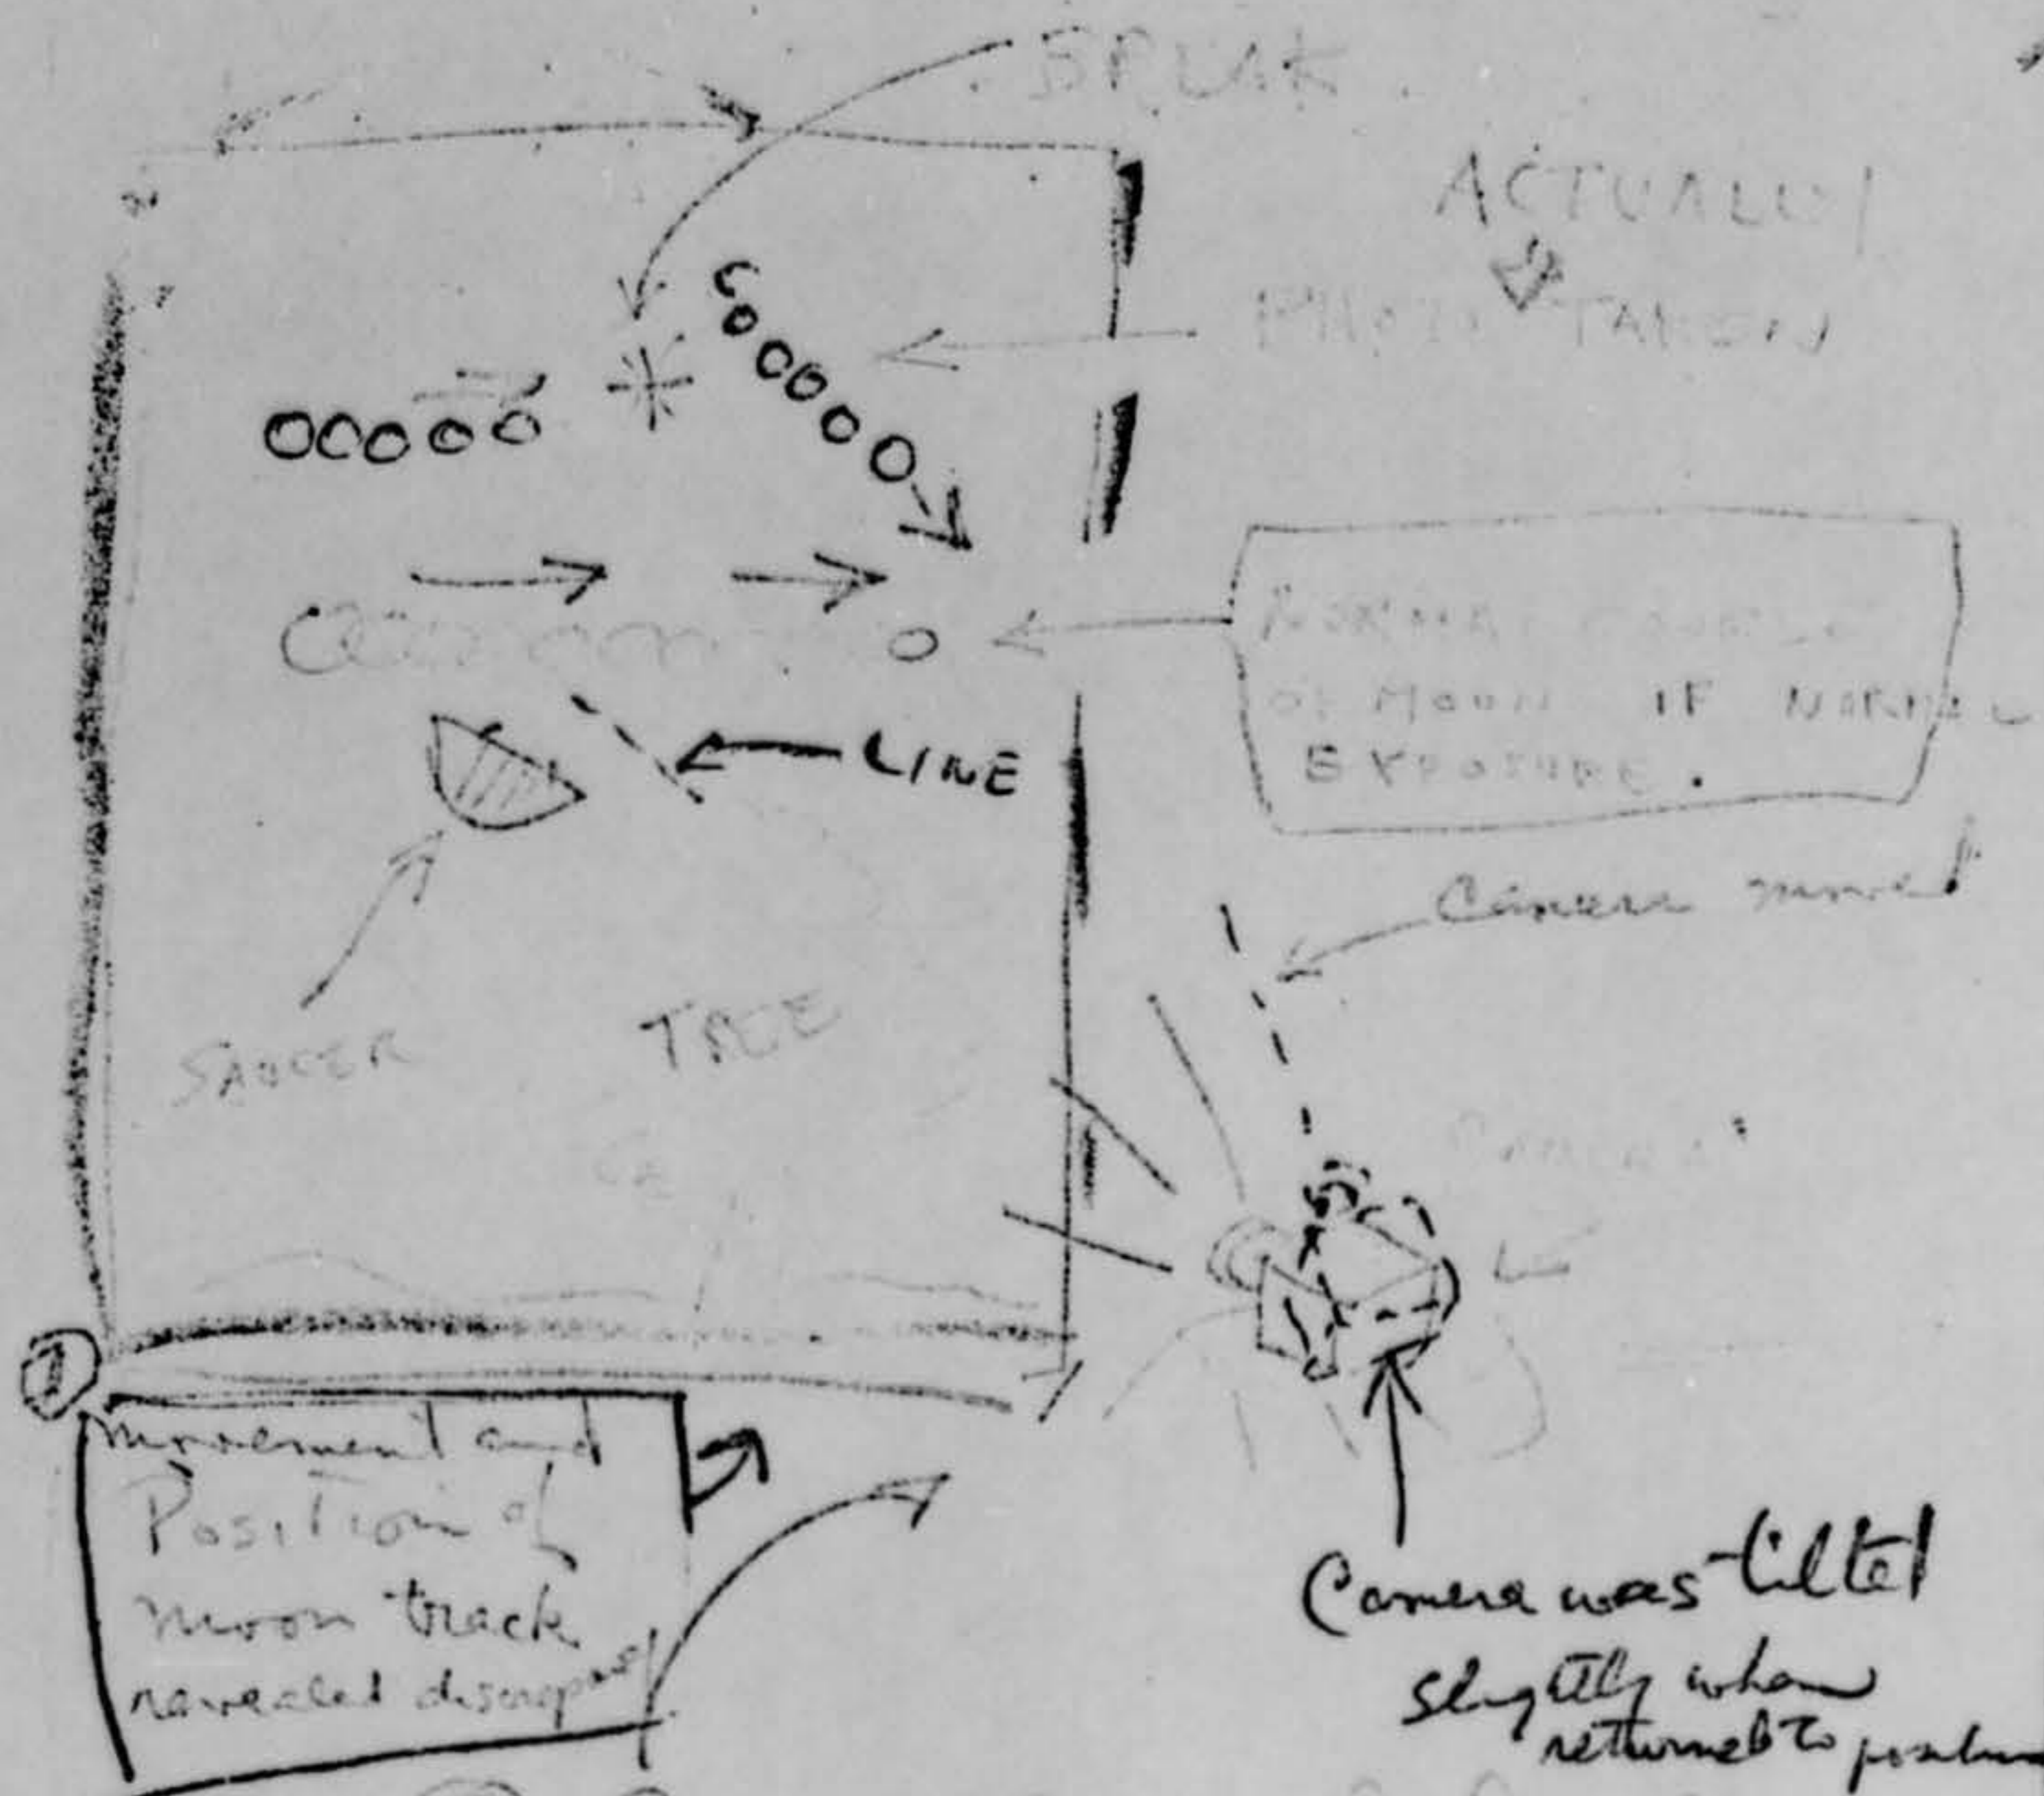 BREAK
ACTUALLY
PHOTO TAKEN
NORMAL COURSE
OF MOON IF NORMAL
EXPOSURE.
LINE
Camera moved
SAUCER
TREE
CAMERA
1
movement and
Position of
moon track
revealed
Camera was tilted
slightly when
returned to position